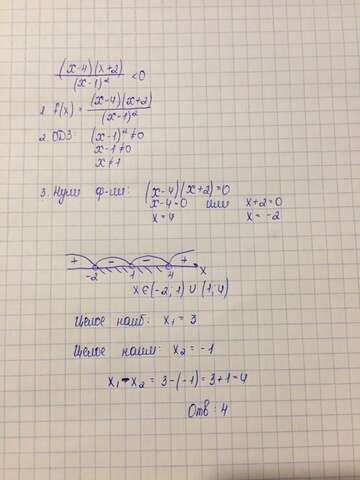 (x-4)(x+2)/(x-1)² <0
1. f(x) = (x-4)(x+2)/(x-1)²
2. ОДЗ: (x-1)²≠0
x-1≠0
x≠1
3. Нули ф-ии: (x-4)(x+2)=0
x-4=0 или x+2=0
x=4 x=-2
+ - - +
-2 1 4 x
x∈(-2;1)∪(1;4)
Целое наиб: x₁=3
Целое наим: x₂=-1
x₁-x₂=3-(-1)=3+1=4
Отв: 4